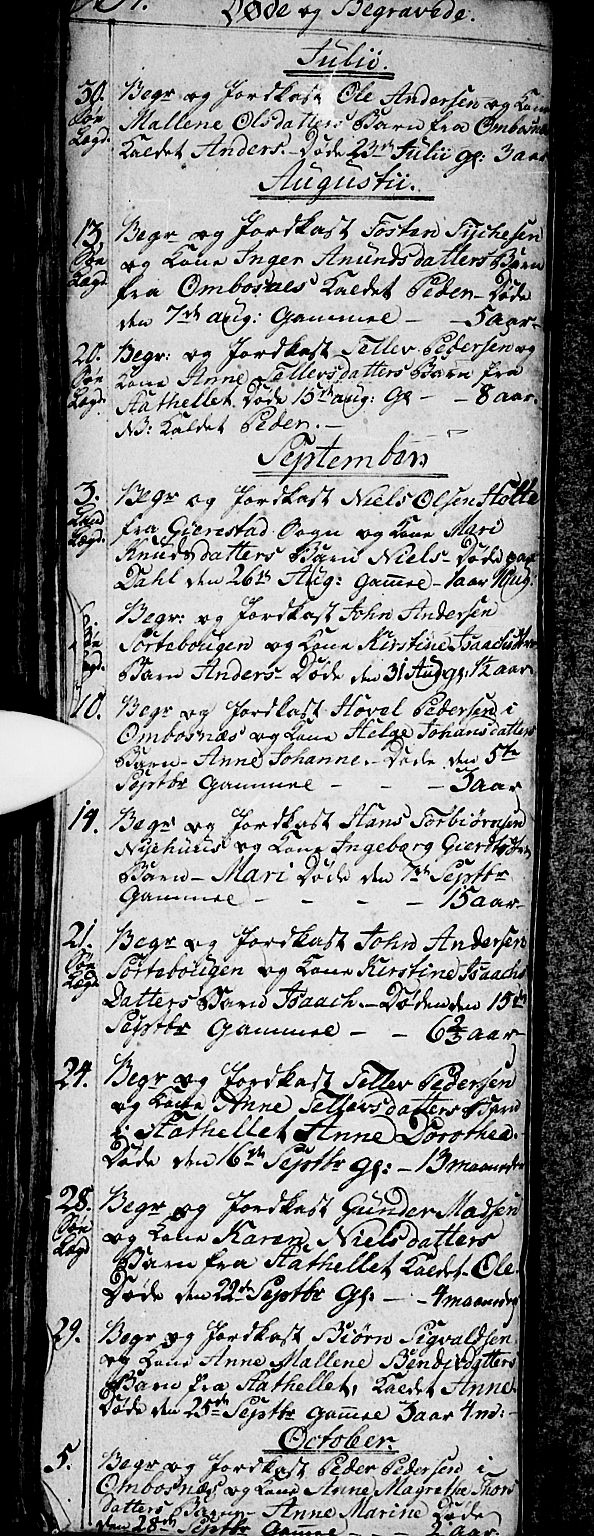 Døde og Begravede.
Julii.
30. Begr og Jordkast Ole Andersen og Kone
Søe Mallene Olsdatters Barn fra Ombosnæs
Lægd. Kaldet Anders. Døde 23de Julii gl: 3 aar
Augustii.
13. Begr og Jordkast Tostan
Søe og Kone Inger Anundsdatters Barn
Lægd fra Ombosnæs Kaldet Peder Døde
den 7de aug: Gammel - - 5 aar
20. Begr: og Jordkast Tellev Pedersen og
Søe Kone Anne Tellevsdatters Barn fra
Lægd. Stathellet Døde 15de aug: Gl - - 8 aar.
NB: Kaldet Peder. -
September
3. Begr og Jordkast Niels Olsen Holte
Land fra Gierestad Sogn og Kone Mari
Lægd. Knudsdatters Barn Niels - Døde paa
Dahl den 26de Aug: Gammel - 1 aar
Begr: og Jordkast John Andersen
Sørtebougen og Kone Kirstine Isachsdatters
Barn Anders Døde den 31 Aug gl. 1½ aar
10. Begr og Jordkast Hovel Pedersen i
Ombosnæs og Kone Helge Johansdatters
Barn - Anne Johanne. - Døde den 5te
Septbr Gammel - - - 3 aar
14. Begr og Jordkast Hans Torbiørnsen
Nyehuus og Kone Ingeborg
Barn - Mari Døde den 7de Septbr
Gammel - - - - 15 aar
21. Begr og Jordkast John Andersen
Søe Sørtebougen og Kone Kirstine Isaachs
Lægd Datters Barn Isaach. - Døde den 15de
Septbr Gammel - - 6⅔ aar
24. Begr og Jordkast Tellev Pedersen
og Kone Anne Tellevsdatters Barn
i Stathellet Anne Dorothea.
Døde den 16de Septbr gl: - 13 maaneder
28. Begr og Jordkast Gunder Madsen
Søe og Kone Karen Nielsdatters
Lægd Barn fra Stathellet Kaldet Ole.
Døde den 22de Septbr Gl: - - 4 maaneder
29. Begr og Jordkast Biørn Sigvaldsen
og Kone Anne Mallene Bendixdatters
Barn fra Stathellet, Kaldet Anne
Døde den 25de Septbr Gammel 3 aar 4 m: -
October.
5. Begr og Jordkast Peder Pedersen i
Ombosnæs og Kone Anne Magrethe Thors
datters Barn - Anne Marine Døde
den 28de Septbr Gammel - - aar